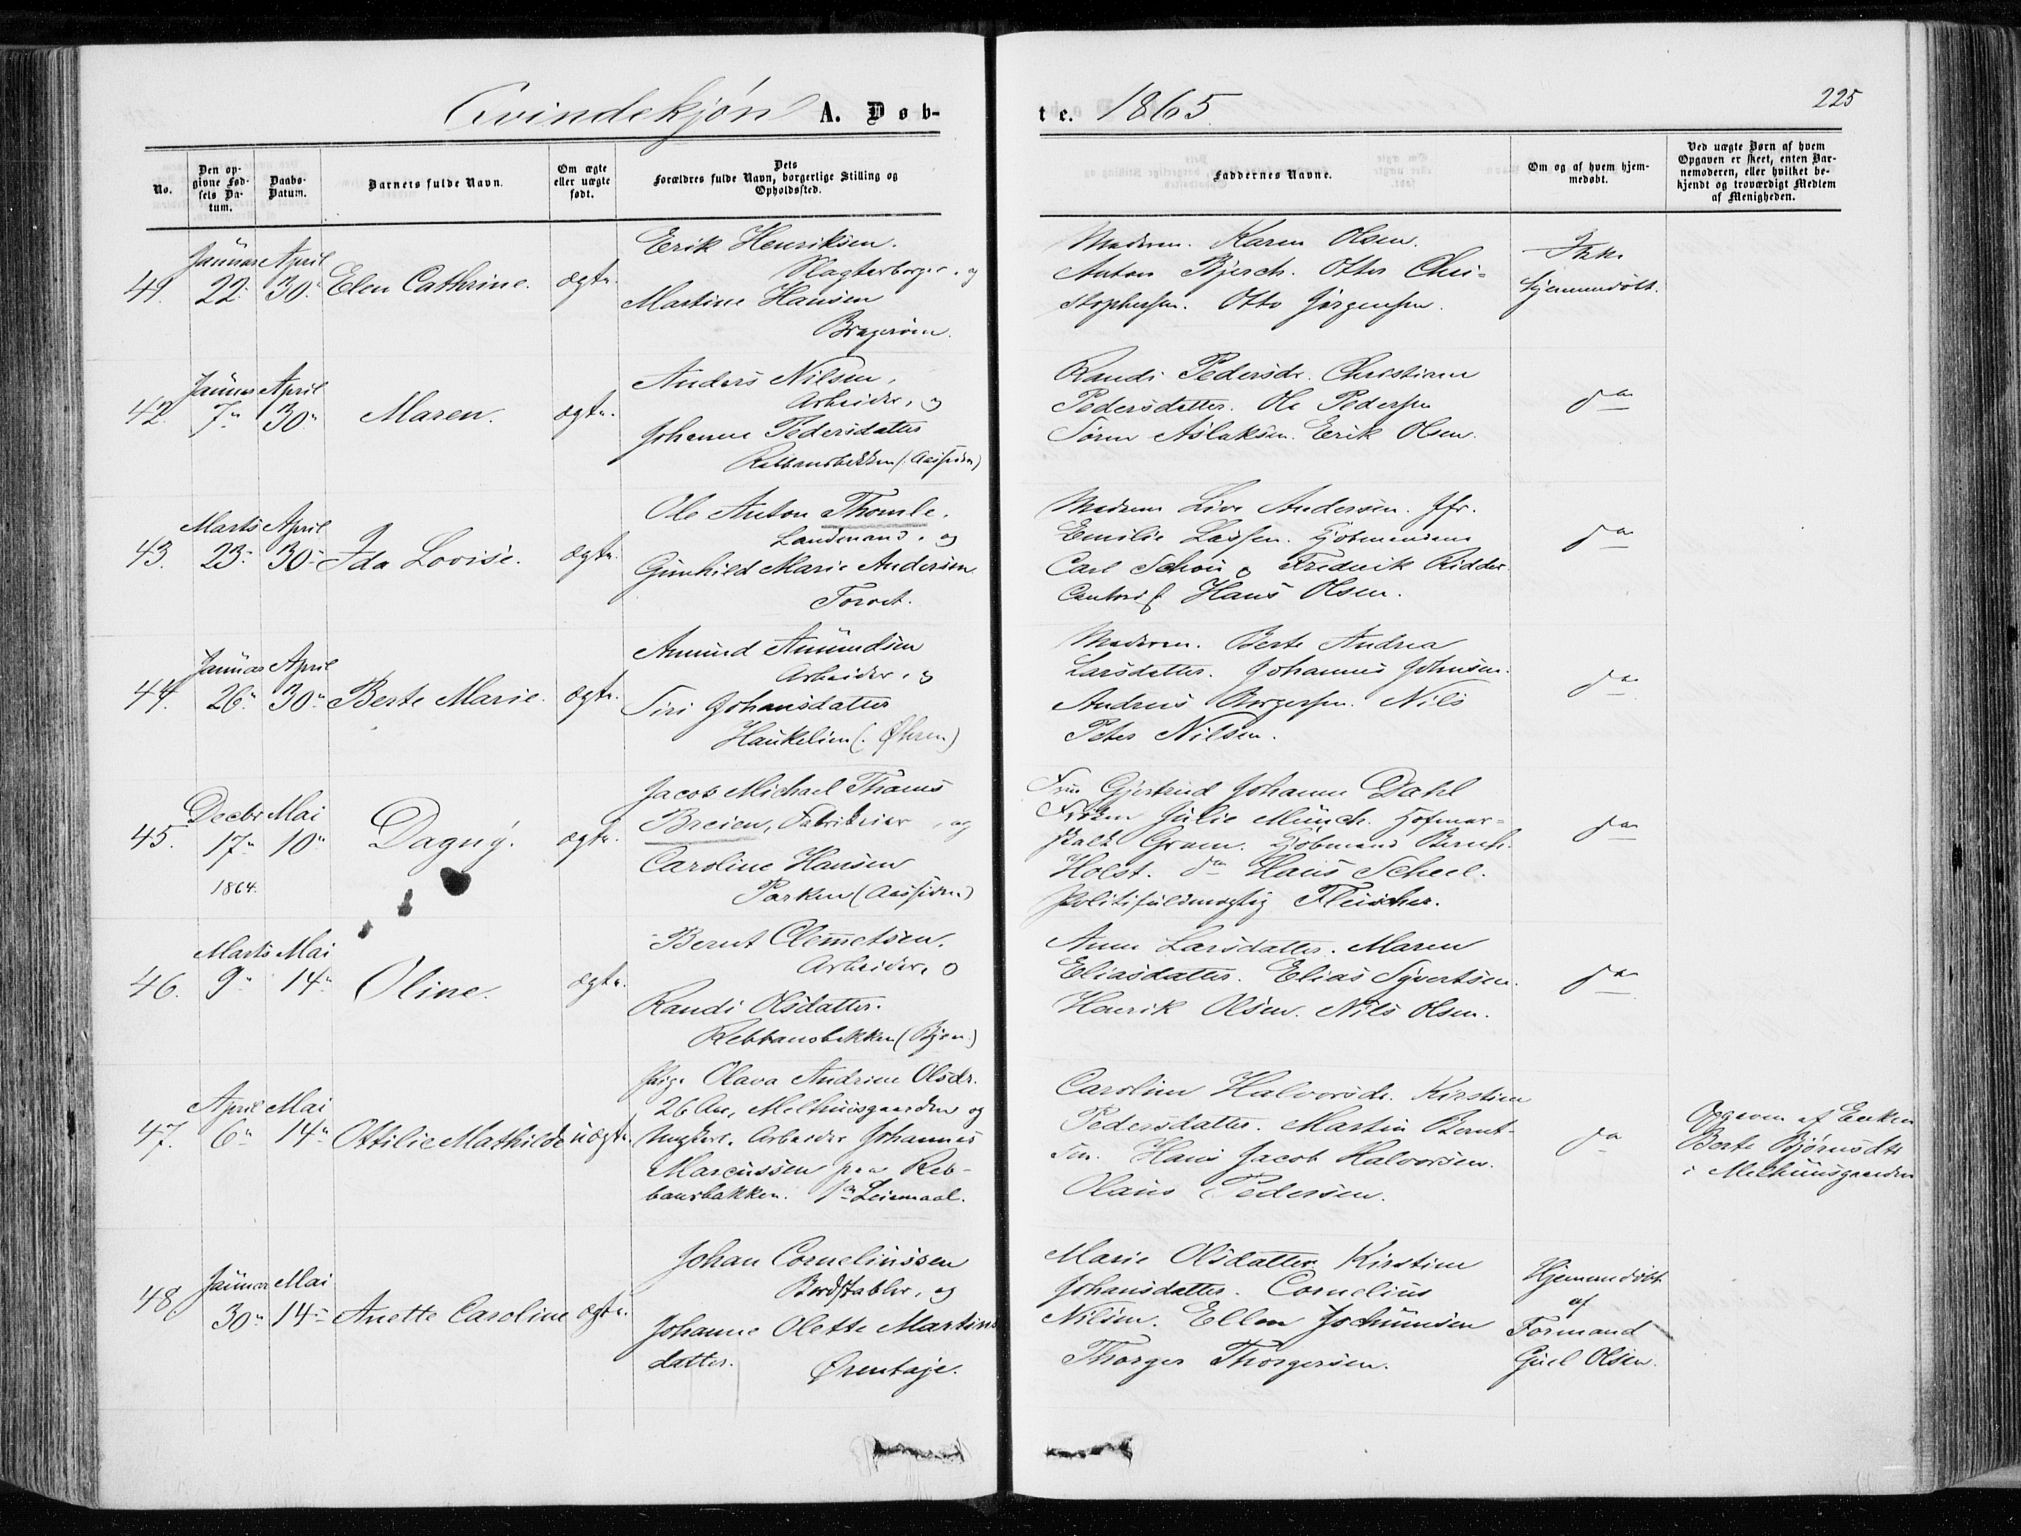 Qvindekjøn A. Døb-
te. 1865.
225
No.
Den op-
givne Fød-
sels Da-
tum.
Daabs-
Datum.
Barnets fulde Navn.
Om ægte
eller uægte
født.
Dets
Forældres fulde Navn, borgerlige Stilling og
Opholdssted.
Faddernes Navne.
Om og af hvem hjem-
medøbt.
Ved uægte Børn af hvem
Opgaven er skeet, enten Bar-
nemoderen, eller hvilket be-
kjendt og troværdigt Medlem
af Menigheden.
41. Januar 22. April 30. Elen Cathrine. ægte.
Erik Henriksen.
Slagterborger, og
Martine Hansen
Bragerøen.
Moderen. Karen Olsen.
Anton Bjerch. Otter Chri-
stophersen. Otto Jørgensen.
Ikke
hjemmedøbt.
42. Januar 7. April 30. Maren. ægte.
Anders Nilsen,
Arbeider, og
Johanne Pedersdatter
Rebbansbakken (Aassiden)
Randi Pedersdr. Christiane
Pedersdatter. Ole Pedersen
Søren Aslaksen. Erik Olsen.
do
43. Marts 23. April 30. Ida Lovise. ægte.
Ole Anton Thomle.
Landmand, og
Gunhild Marie Andersen
Torvet.
Madam Live Andersen. Jfr.
Emilie Lassen. Kjøbmændene
Carl Schou og Fredrik Ridder
Contorist Hans Olsen.
do
44. Januar 26. April 30. Berte Marie. ægte.
Amund Amundsen
Arbeider, og
Siri Johansdatter
Haukelien (Øhren)
Moderen. Berte Andrea
Larsdatter. Johannes Johnsen.
Andreas Borgersen. Nils
Peter Nilsen.
do
45. Decbr 17. 1864. Mai 10. Dagny. ægte.
Jacob Michael Thams
Breien, Fabrikeier, og
Caroline Hansen
Parken (Aassiden)
Fru Gjertrud Johanne Dahl
Frøken Julie Münch. Hofmar-
skalk Gram. Kjøbmand Bernh.
Holst. do Hans Scheel.
Politifuldmægtig Fleischer.
do
46. Marts 9. Mai 14. Oline. ægte.
Bernt Clemetsen.
Arbeider, o
Randi Olsdatter.
Rebbansbakken (Byen)
Anne Larsdatter. Maren
Eliasdatter. Elias Syvertsen.
Henrik Olsen. Nils Olsen.
do
47. April 6. Mai 14. Ottilie Mathilde uægte.
Pige Olava Andrine Olsdr.
26 Aar, Melhuusgaarden og
Ungkarl, Arbeider Johannes
Marcussen paa Reb-
bansbakken. 1ste Leiermaal.
Caroline Halvorsdr. Kirstine
Pedersdatter. Martin Bernt-
sen. Hans Jacob Halvorsen.
Olaus Pedersen.
do
Opgaven af Enken
Berte Bjørnsdtr
i Melhuusgaarden
48. Januar 30. Mai 14. Anette Caroline ægte.
Johan Corneliussen
Bordstabler, og
Johanne Olette Martins
datter.
Ørentaje.
Marie Olsdatter Kirstine
Johansdatter. Cornelius
Nilsen. Ellen Jochumsen
Thorger Thorgersen.
Hjemmedøbt
af
Formand
Gul Olsen.